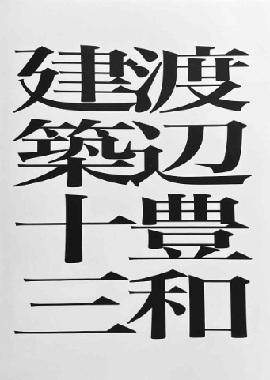 渡辺豊和
建築十三